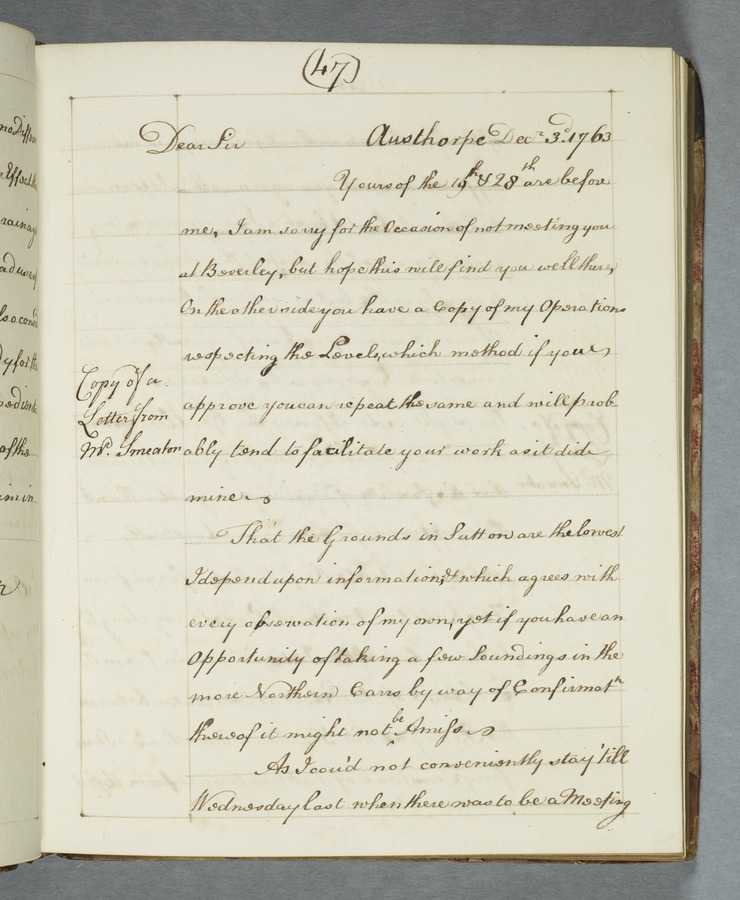 (47)
Dear Sir Austhorpe Decr. 3d. 1763
Yours of the 19th & 28th are before
me, I am sorry for the Occasion of not meeting you
at Beverley, but hope this will find you well there,
On the other side you have a Copy of my Operations
respecting the Levels, which method if you
approve you can repeat the same and will prob
ably tend to facilitate your work as it did
mine
Copy of a
Letter from
Mr. Smeaton
That the Grounds in Sutton are the lowest
I depend upon information, & which agrees with
every observation of my own, yet if you have an
Opportunity of taking a few Soundings in the
more Northern Carrs by way of Confirmatn
thereof it might not be Amiss
As I cou'd not conveniently stay 'till
Wednesday last when there was to be a Meeting